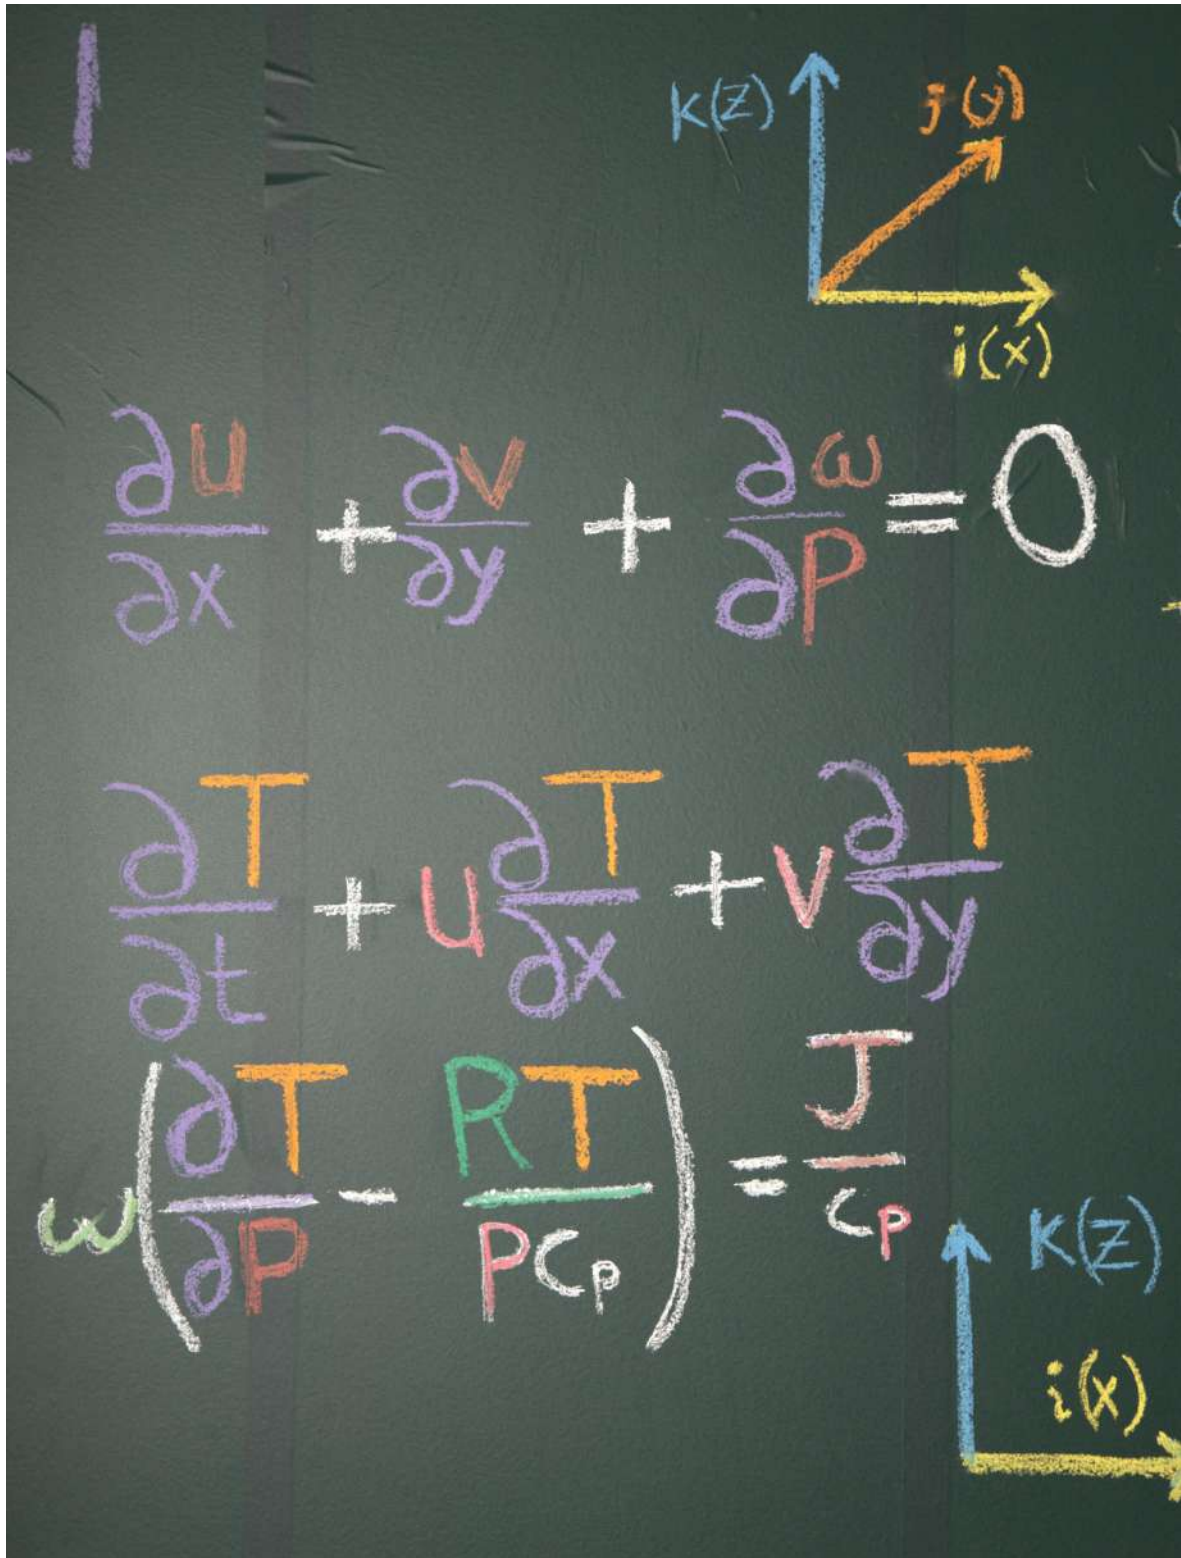 1
k(z) j(y)
i(x)
∂u/∂x + ∂v/∂y + ∂ω/∂P = 0
∂T/∂t + u ∂T/∂x + v ∂T/∂y
ω(∂T/∂P - RT/PCp) = J/cp
k(z)
i(x)